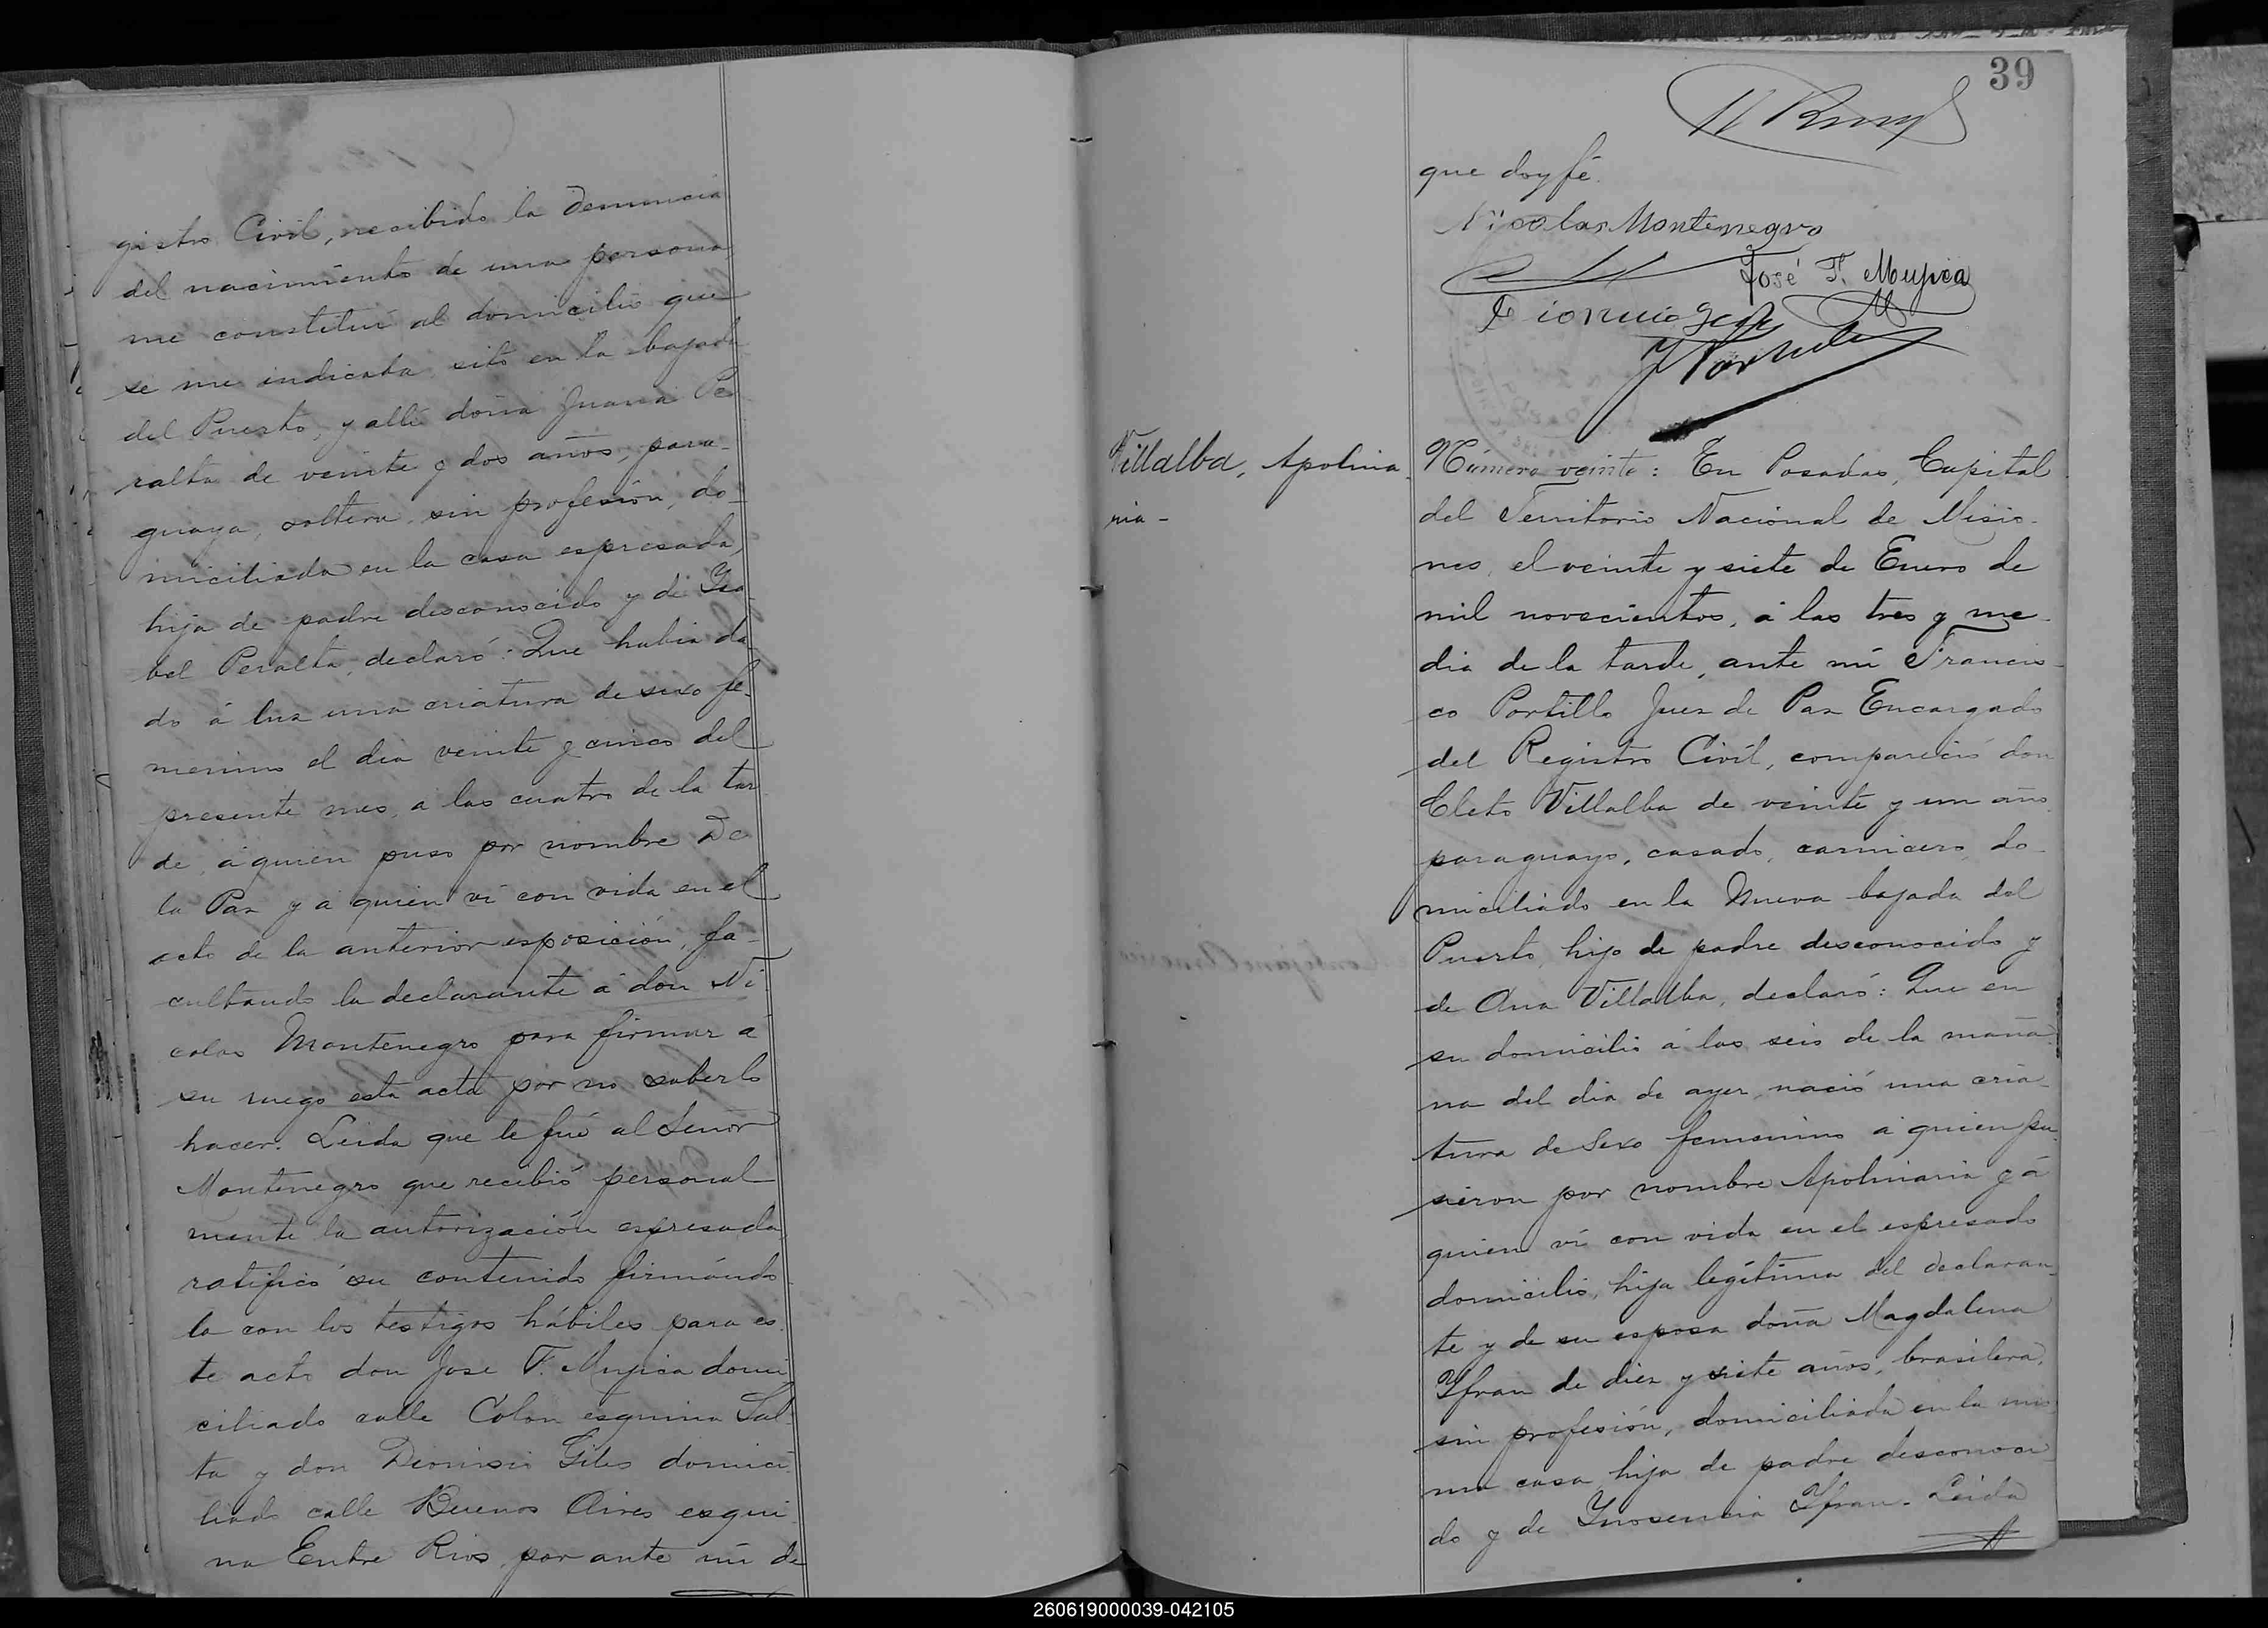 gistro Civil, recibido la denuncia
del nacimiento de una persona
me constituí al domicilio que
se me indicaba sito en la bajada
del Puerto, y allí doña Juana Pe
ralta de veinte y dos años, para-
guaya, soltera, sin profesión, do-
miciliada en la casa espresada,
hija de padre desconocido y de Isa
bel Peralta, declaró: Que habia da
do á luz una criatura de sexo fe-
menino el dia veinte y cinco del
presente mes, á las cuatro de la tar
de, á quien puso por nombre De
la Paz y á quien ví con vida en el
acto de la anterior esposición, fa-
cultando la declarante á don Ni
colas Montenegro para firmar á
su ruego esta acta por no saberlo
hacer. Leida que le fué al Señor
Montenegro que recibió personal
mente la autorización espresada
ratificó su contenido firmándo
la con los testigos hábiles para es
te acto don José F. Mujica domi
ciliado calle Colon esquina Sal
ta y don Dionisio Giles domici
liado calle Buenos Aires esqui
na Entre Rios, por ante mí de
39
que doy fé.
Nicolas Montenegro
José F. Mujica
Villalba, Apolina
ria-
Número veinte: En Posadas, Capital
del Territorio Nacional de Misio-
nes, el veinte y siete de Enero de
mil novecientos, á las tres y me-
dia de la tarde, ante mí Francis-
co Portillo Juez de Paz Encargado
del Registro Civil, compareció don
Cleto Villalba de veinte y un año
paraguayo, casado, carnicero, do-
miciliado en la Nueva bajada del
Puerto, hijo de padre desconocido y
de Ana Villalba, declaró: Que en
su domicilio á las seis de la maña
na del dia de ayer, nació una cria-
tura de sexo femenino á quien pu
sieron por nombre Apolinaria y á
quien ví con vida en el espresado
domicilio, hija legítima del declaran
te y de su esposa doña Magdalena
Yfran de diez y siete años, brasilera,
sin profesión, domiciliada en la mis
ma casa, hija de padre desconoci
do y de Inosencia Yfran. Leida
260619000039-042105